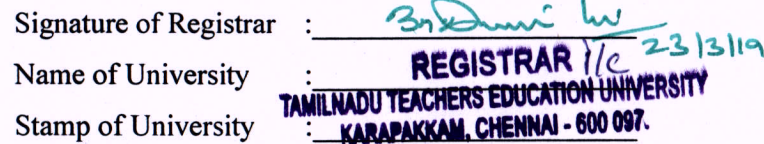 Signature of Registrar :
REGISTRAR I/c 23/3/19
Name of University :
TAMILNADU TEACHERS EDUCATION UNIVERSITY
Stamp of University : KARAPAKKAM, CHENNAI - 600 097.